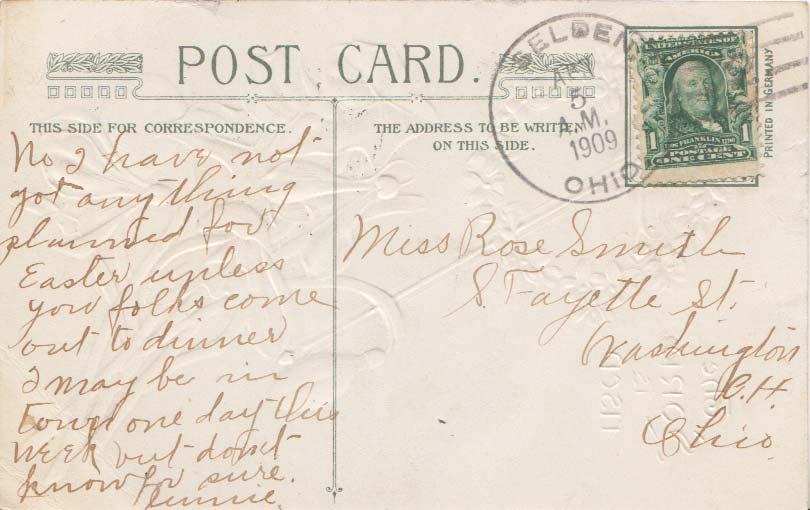 POST CARD.
THIS SIDE FOR CORRESPONDENCE.
THE ADDRESS TO BE WRITTEN
ON THIS SIDE.
SELDEN
APR
5
A.M.
1909
OHIO
UNITED STATES OF
AMERICA
1 FRANKLIN 1
POSTAGE
ONE CENT
PRINTED IN GERMANY
No I have not
got anything
planned for
Easter unless
you folks come
out to dinner
I may be in
town one day this
week but don't
know for sure.
Miss Rose Smith
S. Fayette St.
Washington
C.H.
Ohio